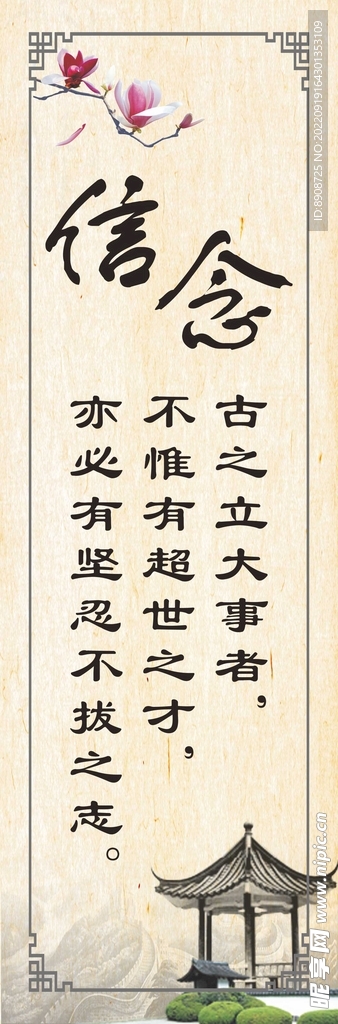 信念
古之立大事者，
不惟有超世之才，
亦必有坚忍不拔之志。
ID:8908725 NO:20220919164301353109
昵享网 www.nipic.cn